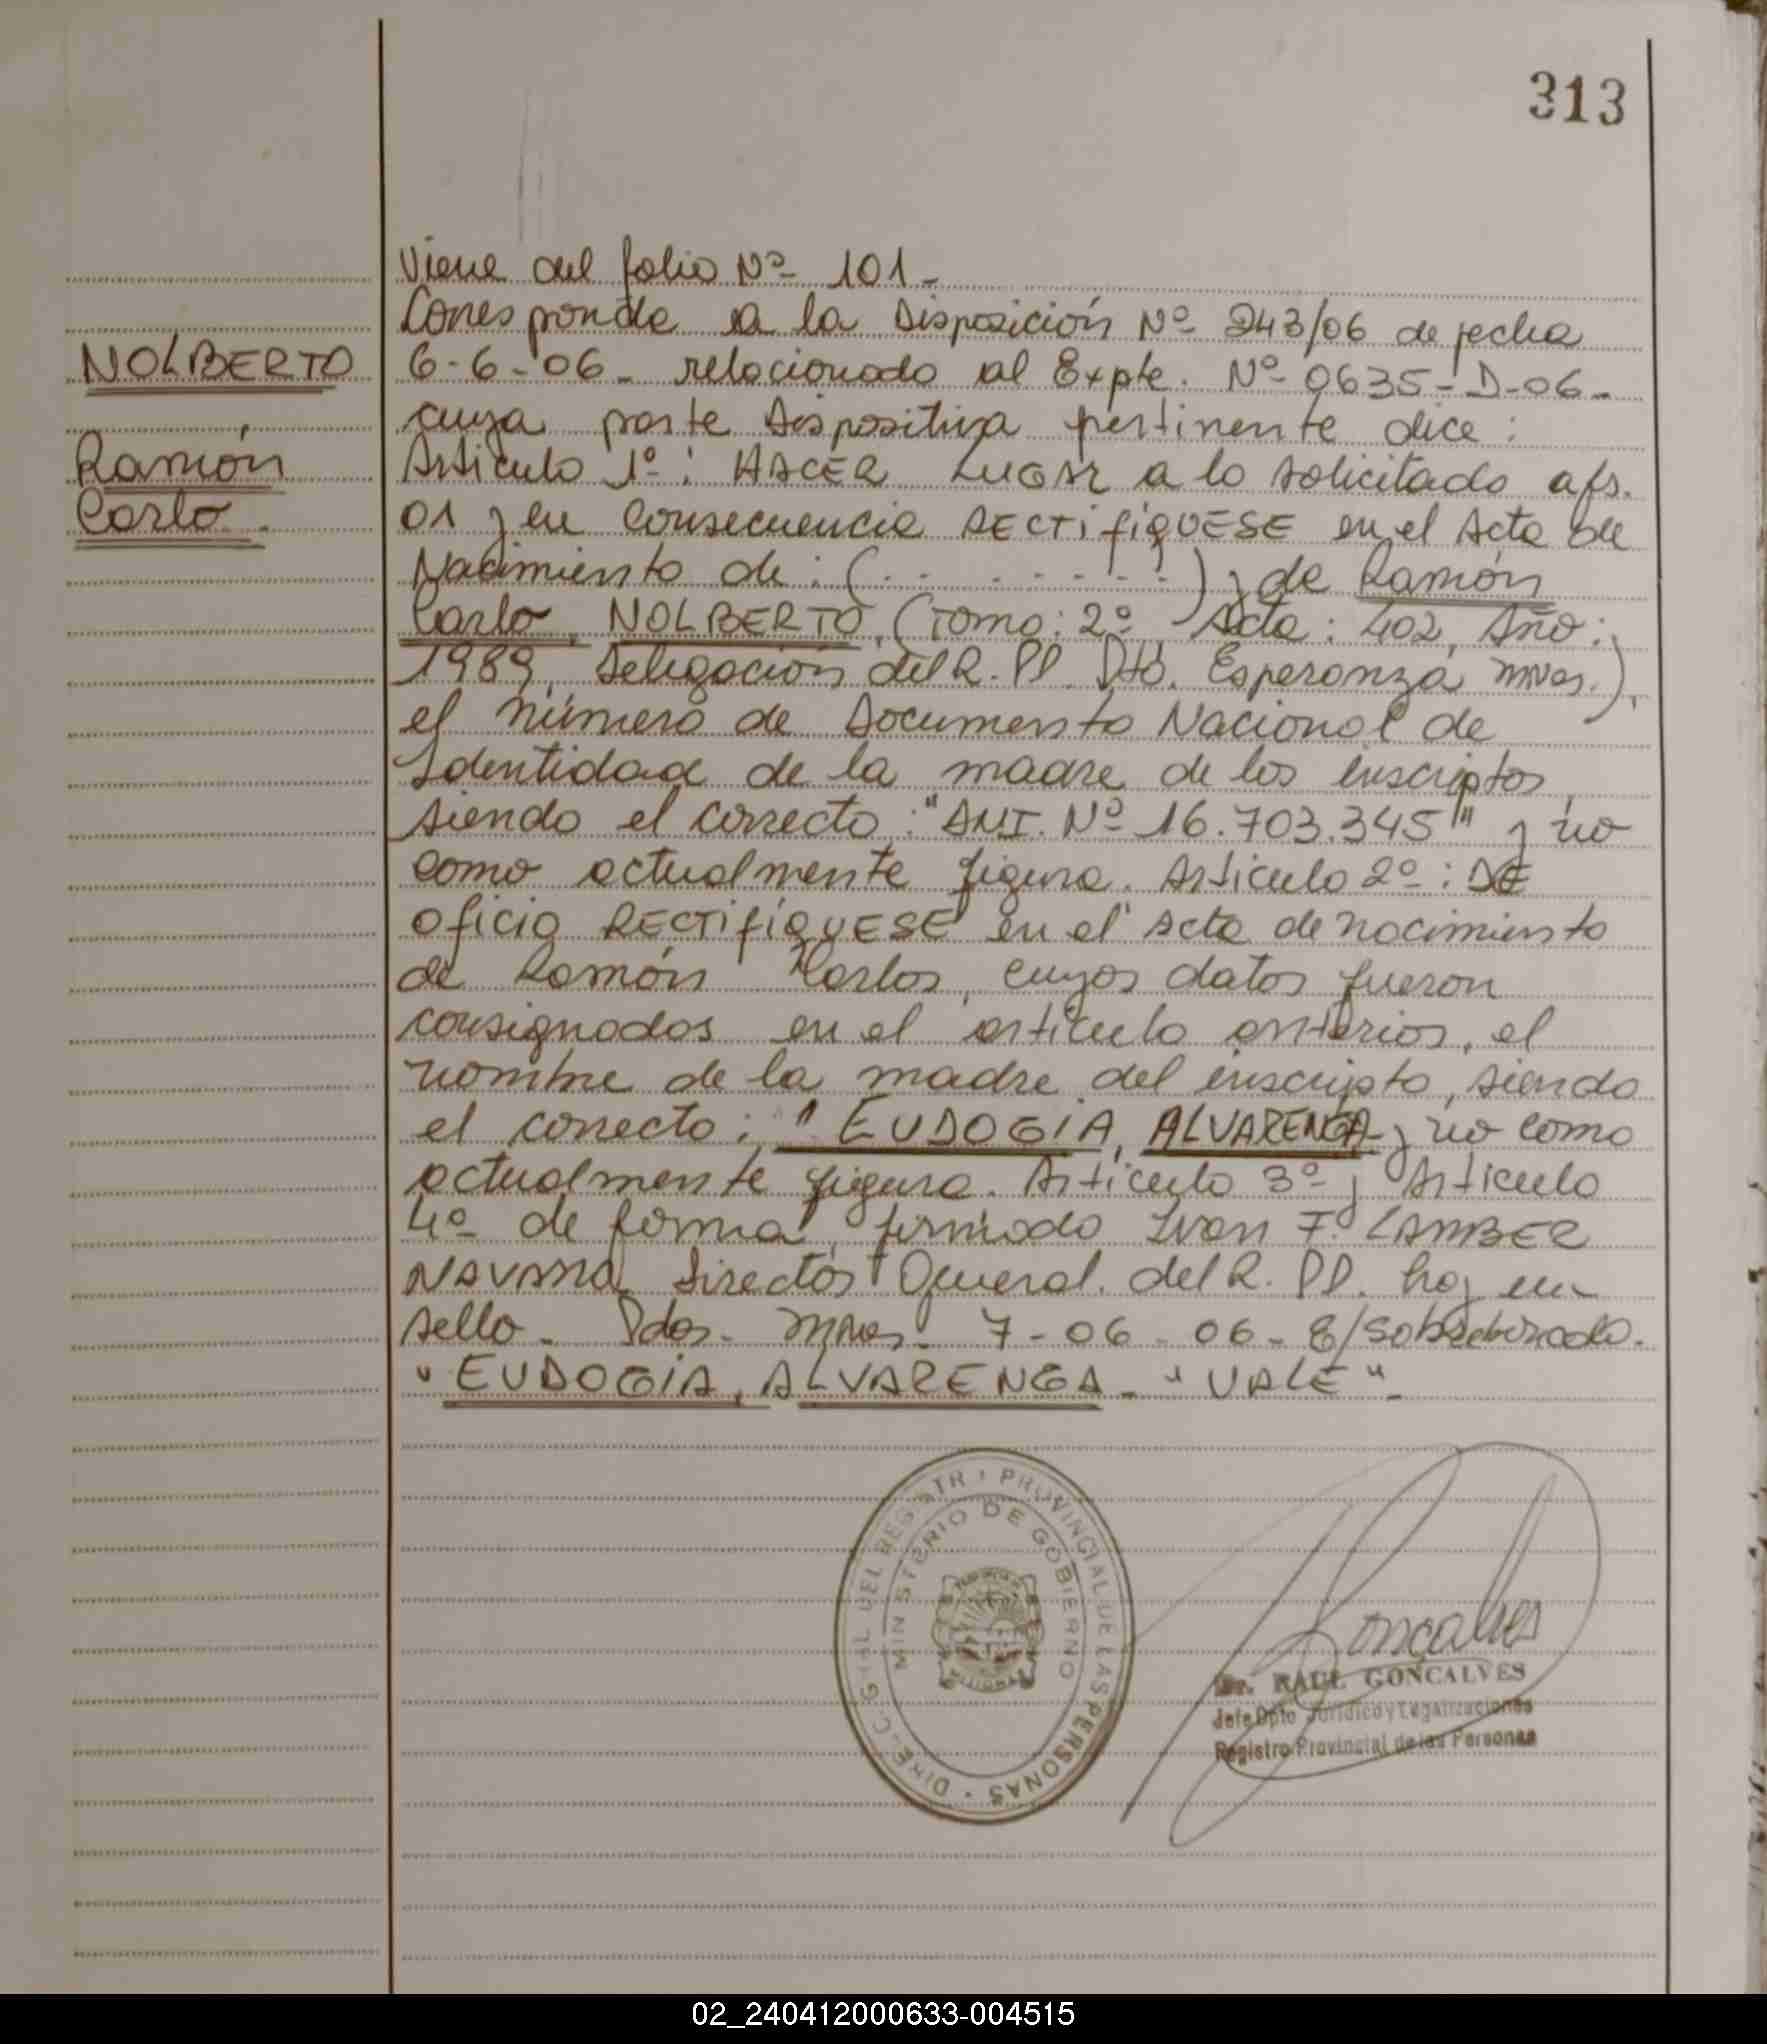 313
Viene del folio Nº 101-
Corresponde a la Disposición Nº 243/06 de fecha
NOLBERTO
6-6-06- relacionado al Expte. Nº 0635-D-06-
cuya parte dispositiva pertinente dice:
Ramón
Artículo 1º: HACER LUGAR a lo solicitado a fs.
Carlo.
01 y en consecuencia RECTIFÍQUESE en el Acta de
Nacimiento de: (..........) y de Ramón
Carlo, NOLBERTO, (Tomo: 2º Acta: 402, Año:
1989, Delegación del R. PP. Dto. Esperanza Mnes.),
el número de Documento Nacional de
Identidad de la madre de los inscriptos,
siendo el correcto: "DNI. Nº 16.703.345" y no
como actualmente figura. Artículo 2º: DE
oficio RECTIFÍQUESE en el Acta de nacimiento
de Ramón Carlos, cuyos datos fueron
consignados en el artículo anterior, el
nombre de la madre del inscripto, siendo
el correcto: "EUDOGIA, ALVARENGA- y no como
actualmente figura. Artículo 3º y Artículo
4º de forma, firmado Ivan F. CAMBER
NAVARRA Director General. del R. PP. hay un
sello- Pdas- Mnes- 7-06-06- E/Sobreborrado.
"EUDOGIA, ALVARENGA- "VALE"-
DIREC. GRAL DEL REGISTR PROVINCIAL DE LAS PERSONAS
MINISTERIO DE GOBIERNO
Goncalves
Dr. RAUL GONCALVES
Jefe Dpto Jurídico y Legalizaciones
Registro Provincial de las Personas
02_240412000633-004515